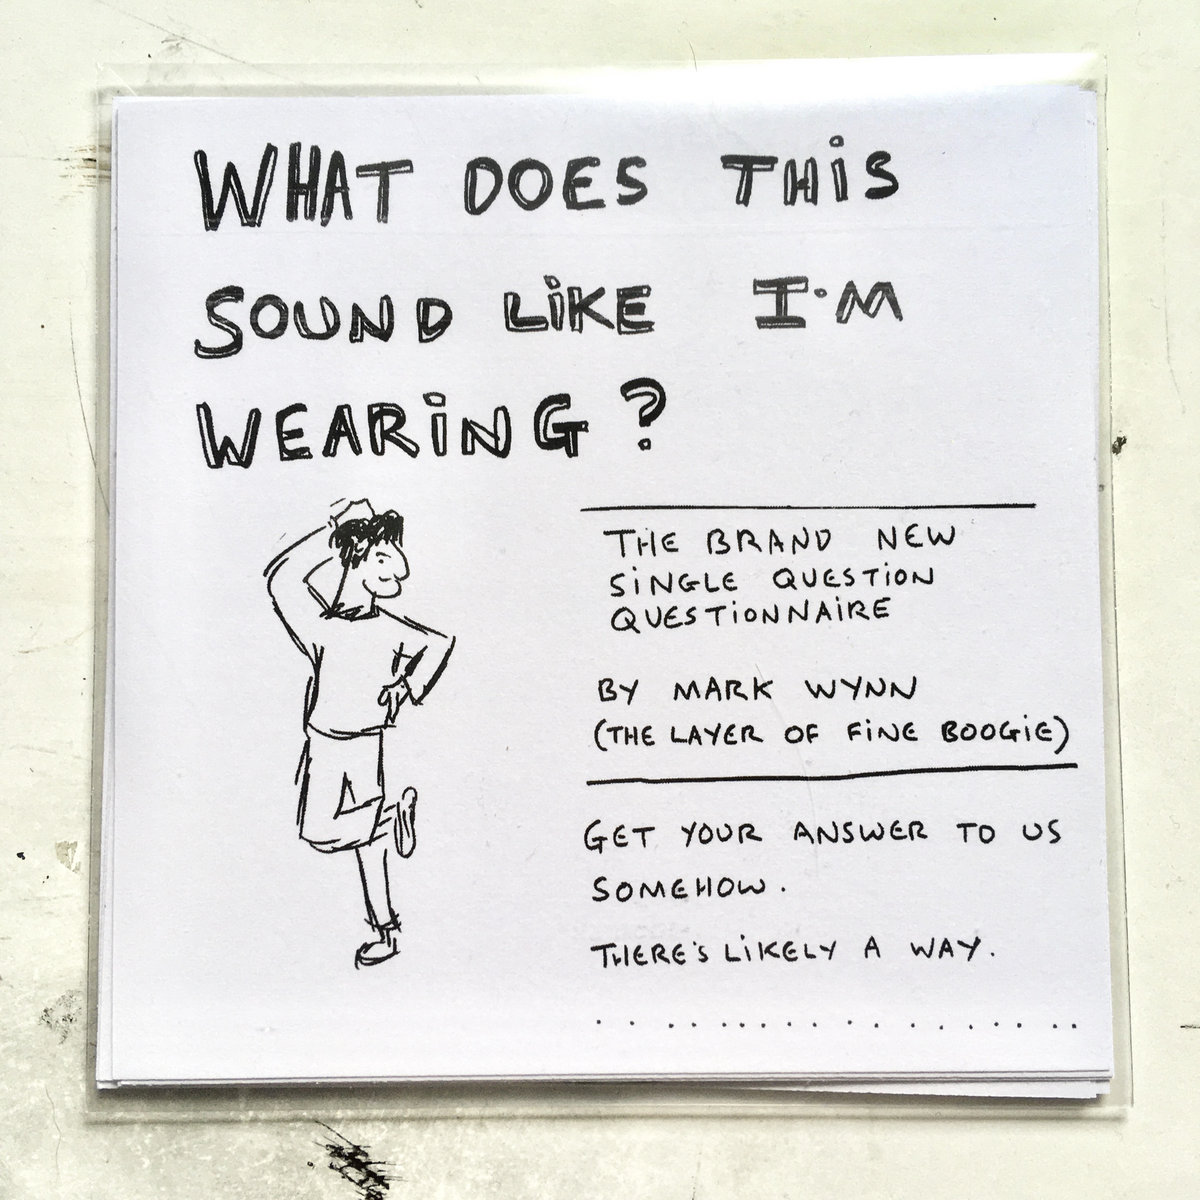 WHAT DOES THIS
SOUND LIKE I'M
WEARING?
THE BRAND NEW
SINGLE QUESTION
QUESTIONNAIRE
BY MARK WYNN
(THE LAYER OF FINE BOOGIE)
GET YOUR ANSWER TO US
SOMEHOW.
THERE'S LIKELY A WAY.
..................